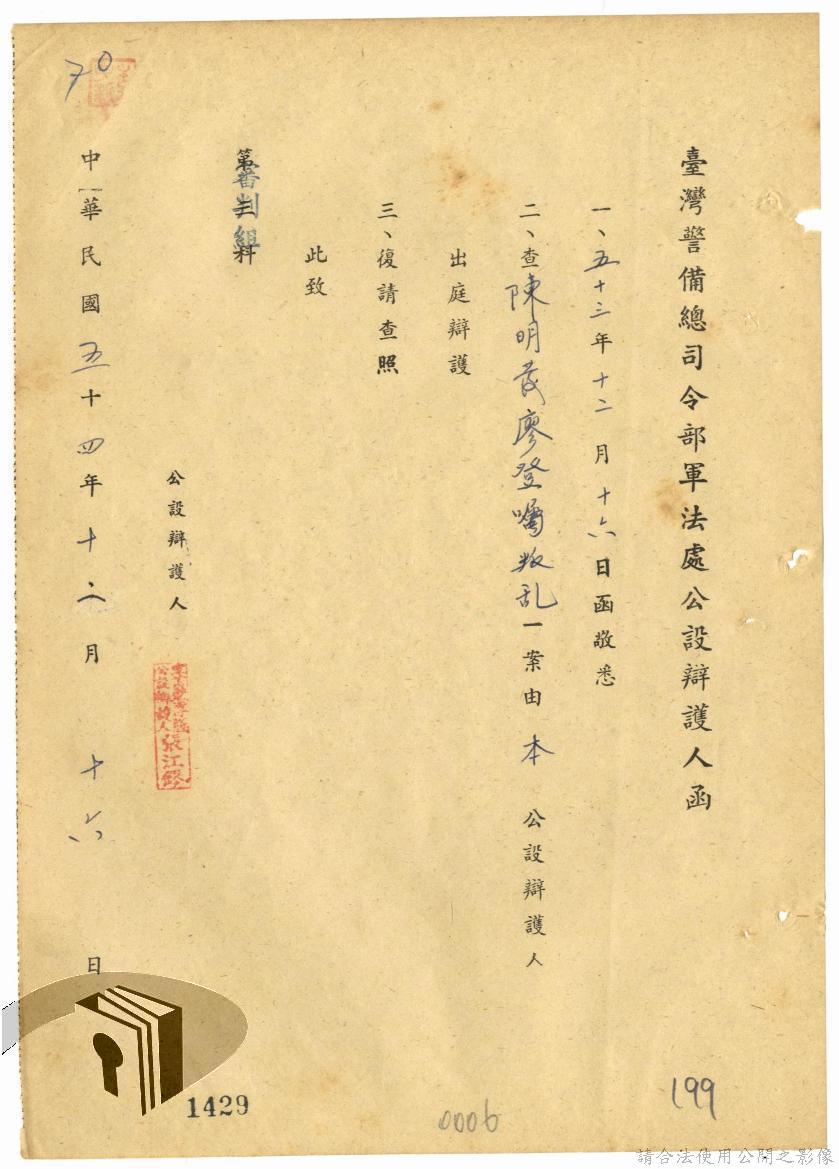 臺灣警備總司令部軍法處公設辯護人函
一、五十三年十二月十六日函敬悉
二、查陳明發廖登囑叛乱一案由本公設辯護人
出庭辯護
三、復請查照
此致
審判組
公設辯護人
公設辯護人張江
中華民國五十四年十二月十六日
70
1429
0006
199
請合法使用公開之影像